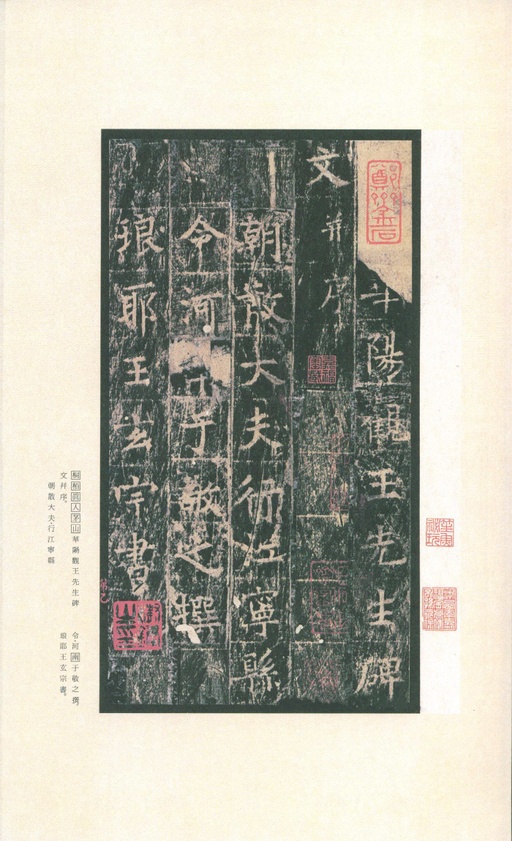 鄭齋金石
陽觀王先生碑
文并序
朝散大夫行江寧縣
令河于敬之撰
琅耶王玄宗書
桐栢真人茅山華陽觀王先生碑
文并序。
朝散大夫行江寧縣
令河南于敬之撰。
琅耶王玄宗書。